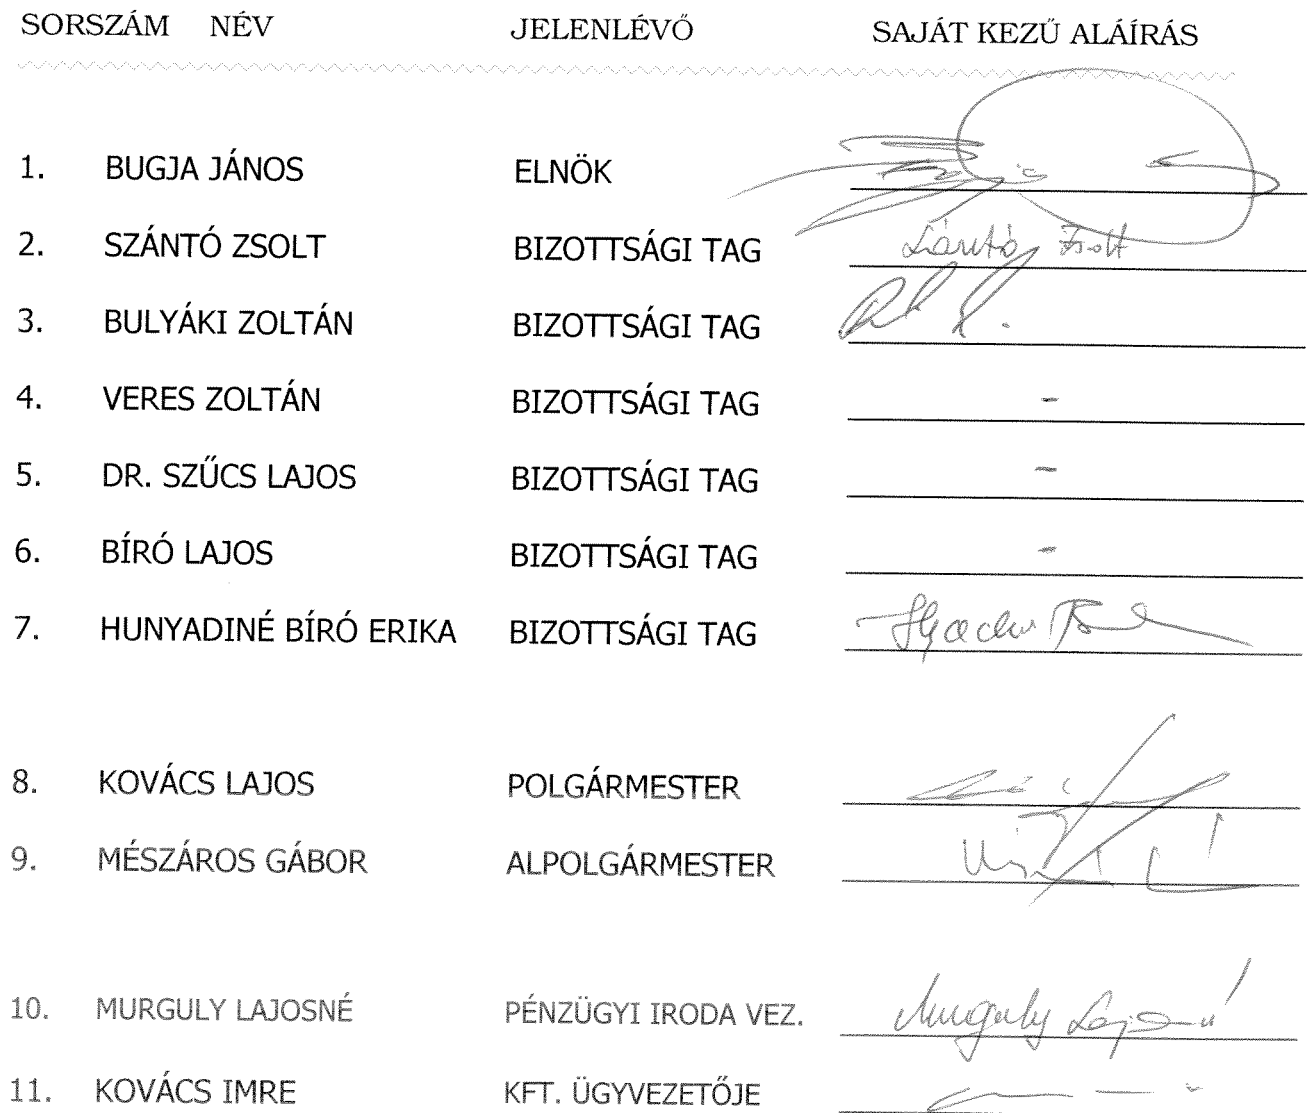 SORSZÁM NÉV JELENLÉVŐ SAJÁT KEZŰ ALÁÍRÁS
1. BUGJA JÁNOS ELNÖK
2. SZÁNTÓ ZSOLT BIZOTTSÁGI TAG Szántó Zsolt
3. BULYÁKI ZOLTÁN BIZOTTSÁGI TAG
4. VERES ZOLTÁN BIZOTTSÁGI TAG -
5. DR. SZŰCS LAJOS BIZOTTSÁGI TAG -
6. BÍRÓ LAJOS BIZOTTSÁGI TAG -
7. HUNYADINÉ BÍRÓ ERIKA BIZOTTSÁGI TAG
8. KOVÁCS LAJOS POLGÁRMESTER
9. MÉSZÁROS GÁBOR ALPOLGÁRMESTER
10. MURGULY LAJOSNÉ PÉNZÜGYI IRODA VEZ. Murguly Lajosné
11. KOVÁCS IMRE KFT. ÜGYVEZETŐJE